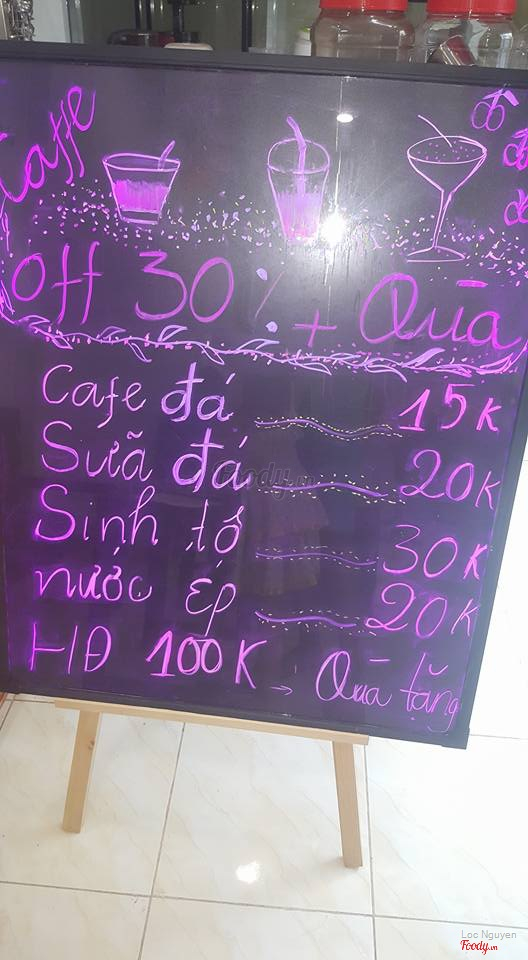 Caffe
đồ
off 30% + Quà
Cafe đá 15k
Sữa đá 20k
Sinh tố 30k
nước ép 20k
HĐ 100K → Quà tặng
Foody.vn
Loc Nguyen
Foody.vn